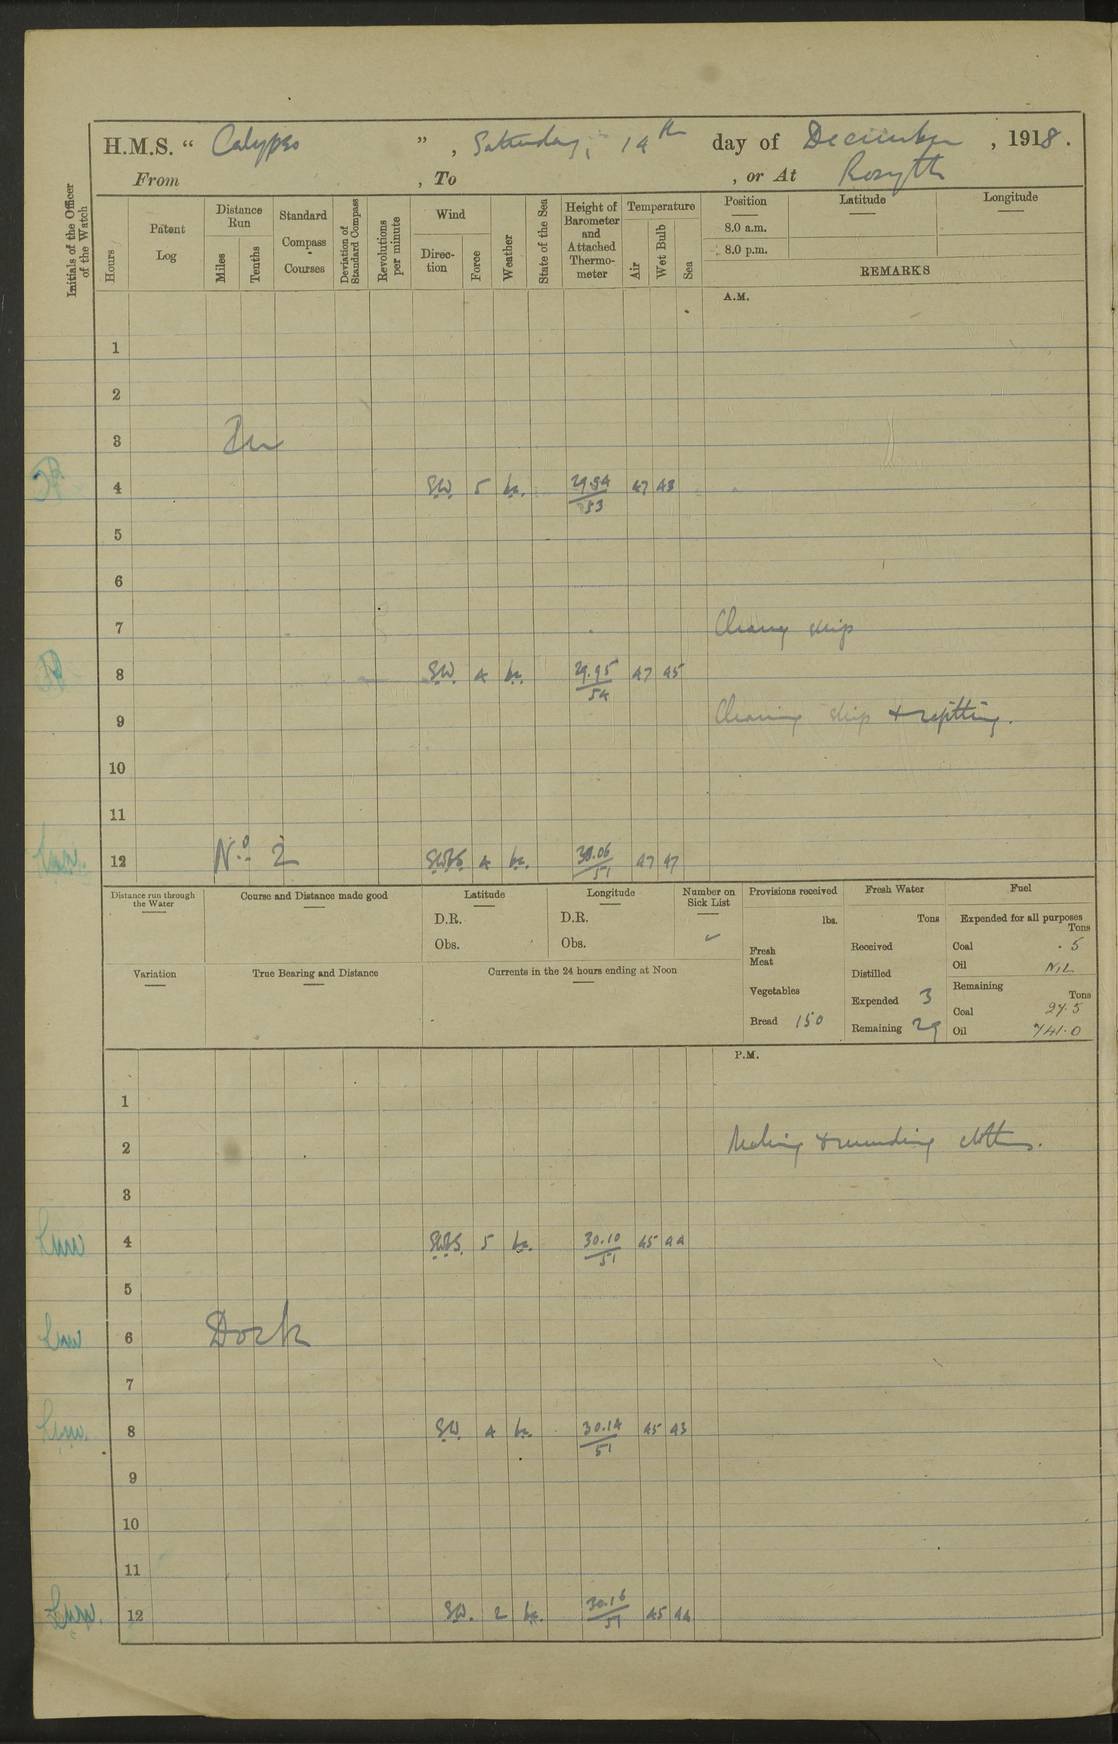 H.M.S. “ Calypso ” , Saturday, 14th day of December , 1918.
From , To , or At Rosyth
Initials of the Officer of the Watch
Hours
Patent Log
Distance Run
Miles
Tenths
Standard Compass Courses
Deviation of Standard Compass
Revolutions per minute
Wind
Direction
Force
Weather
State of the Sea
Height of Barometer and Attached Thermometer
Temperature
Air
Wet Bulb
Sea
Position
Latitude
Longitude
8.0 a.m.
8.0 p.m.
REMARKS
A.M.
1
2
3 In
4 S.W. 5 bc. 29.94/53 47 43
5
6
7 Cleaning ship
8 S.W. 4 bc. 29.95/54 47 45
9 Cleaning ship & refitting.
10
11
12 No. 2 SWbS 4 bc. 30.06/51 47 47
Distance run through the Water
Course and Distance made good
Latitude
D.R.
Obs.
Longitude
D.R.
Obs.
Number on Sick List
✓
Provisions received
lbs.
Fresh Meat
Vegetables
Bread 150
Fresh Water
Tons
Received
Distilled
Expended 3
Remaining 29
Fuel
Expended for all purposes
Tons
Coal .5
Oil NIL
Remaining
Tons
Coal 27.5
Oil 741.0
Variation
True Bearing and Distance
Currents in the 24 hours ending at Noon
P.M.
1
2 Making & mending clothes.
3
4 SWbS. 5 bc. 30.10/51 45 44
5
6 Dock
7
8 S.W. 4 bc. 30.14/51 45 43
9
10
11
12 SW. 2 bc. 30.16/51 45 44